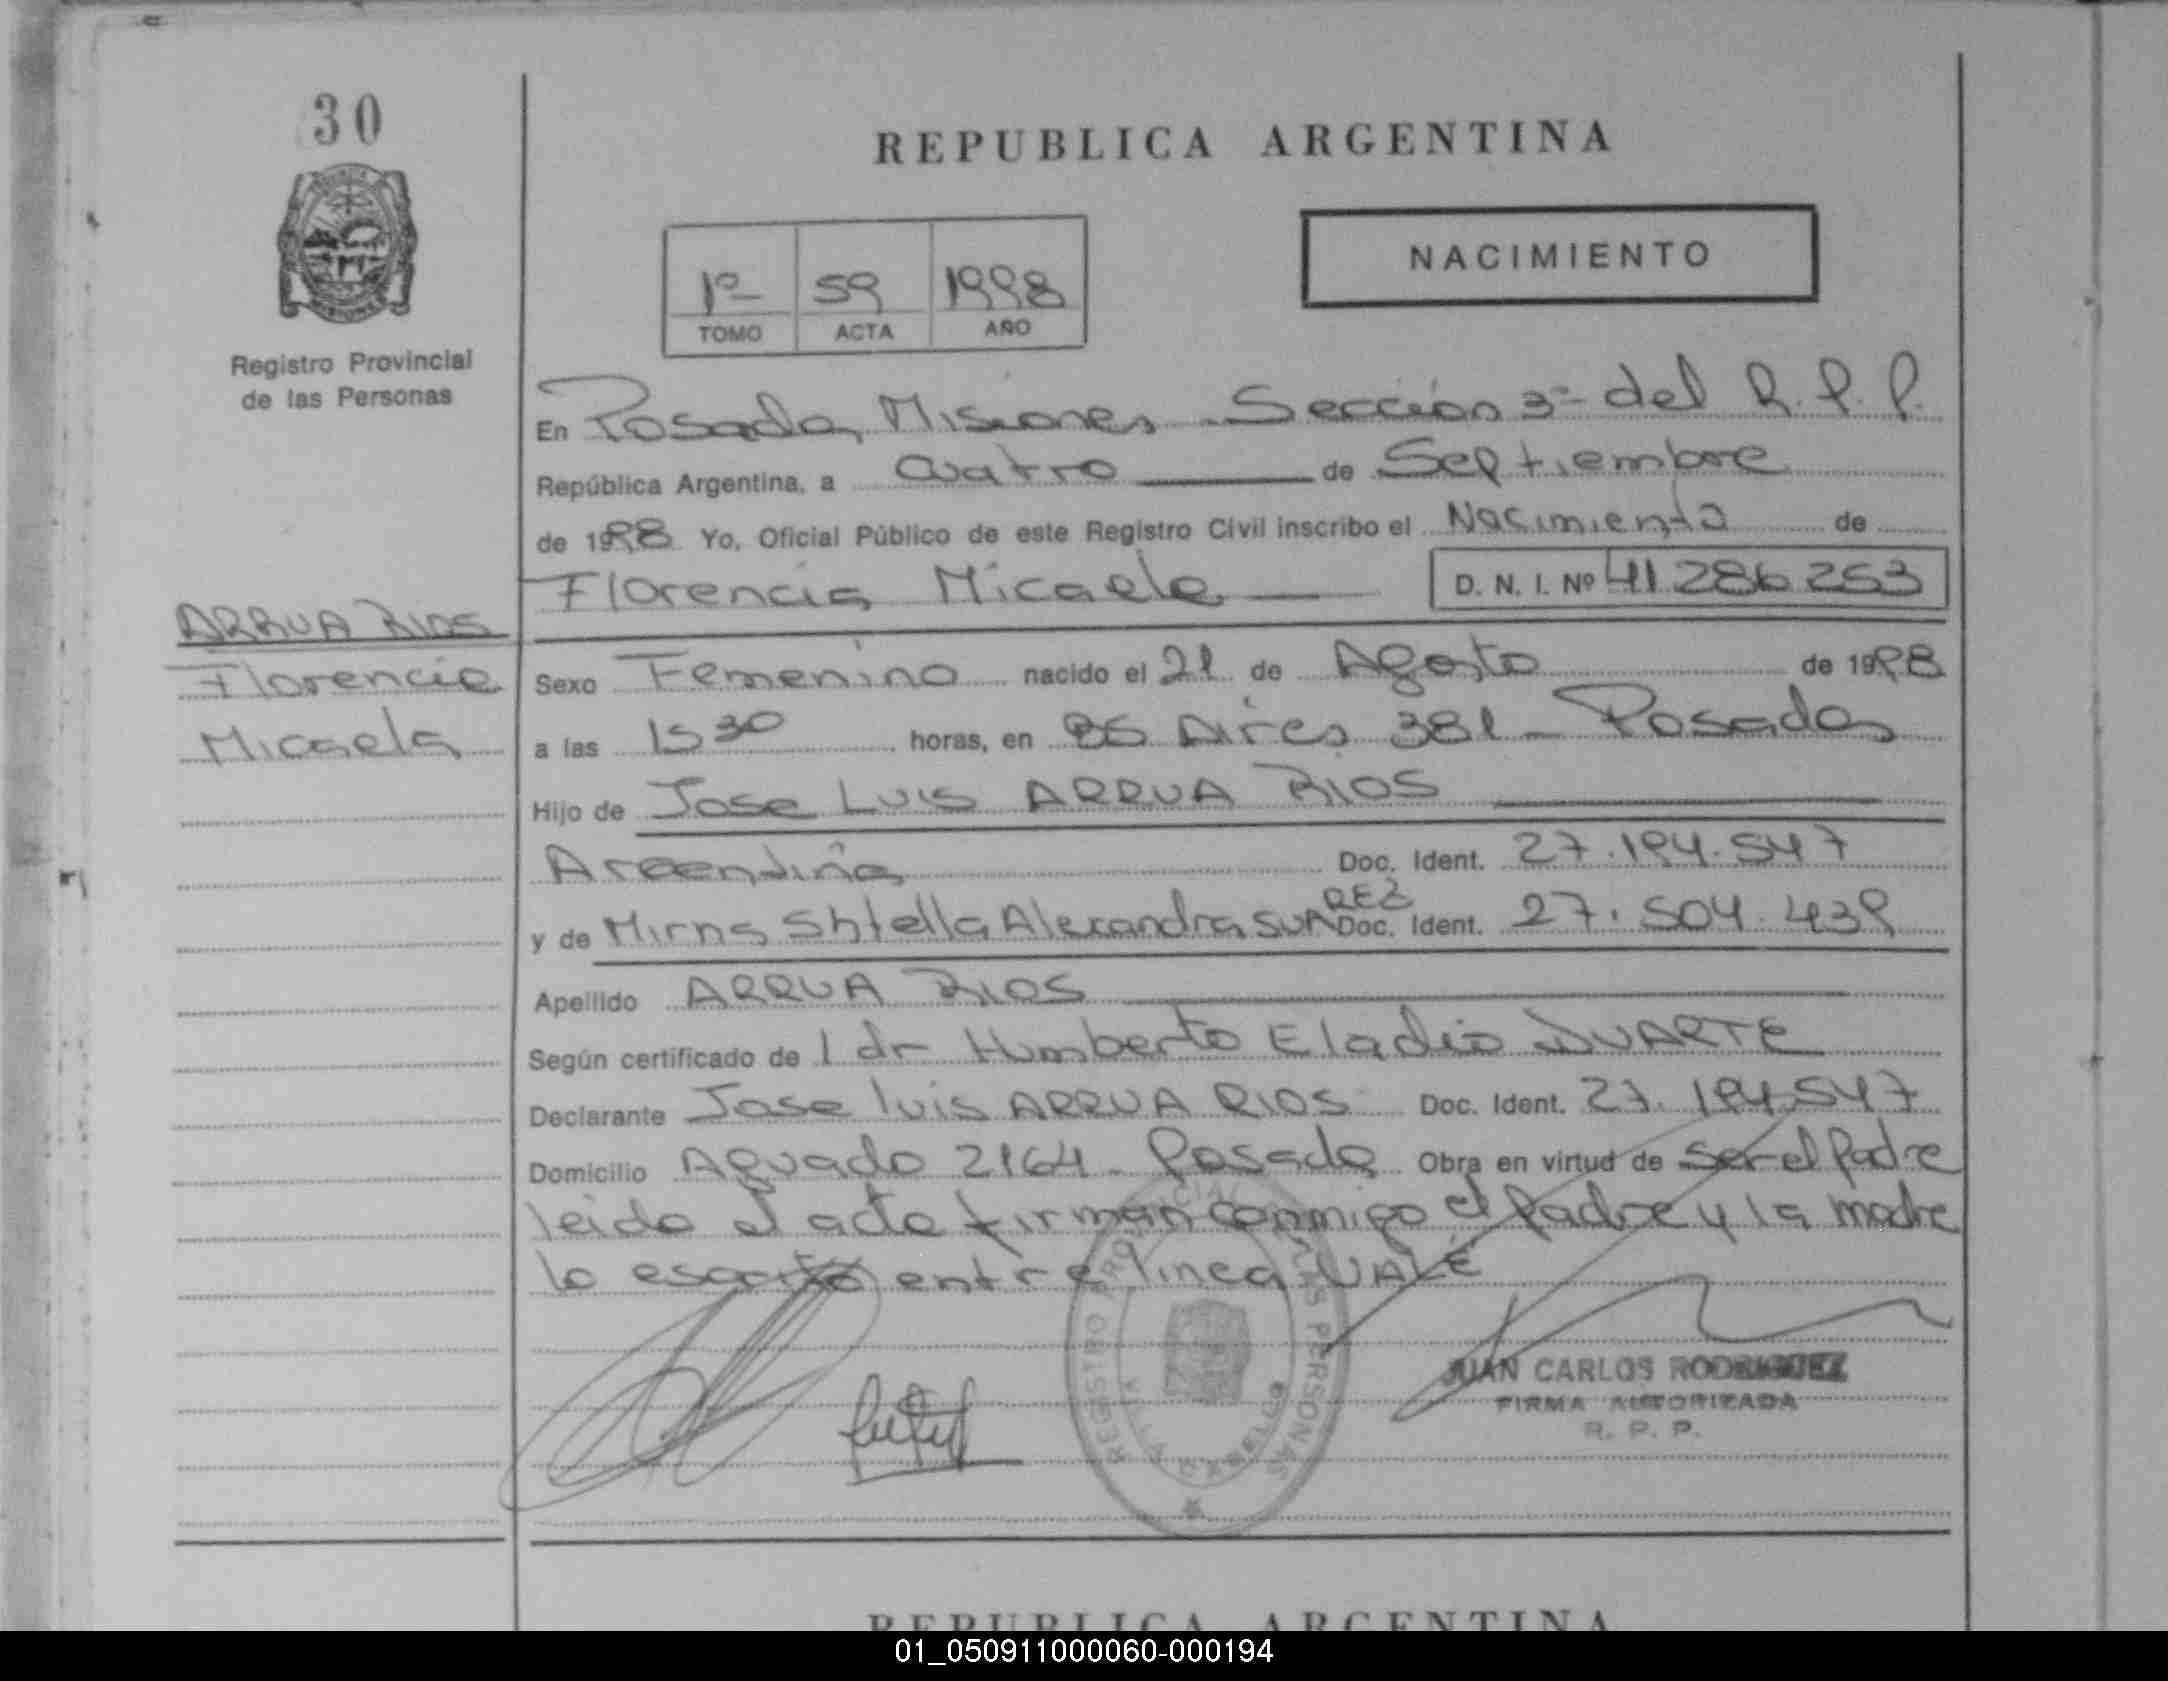 30
REPUBLICA ARGENTINA
NACIMIENTO
1º 59 1998
TOMO ACTA AÑO
Registro Provincial
de las Personas
En Posadas, Misiones - Sección 3ª del R.P.P.
República Argentina, a cuatro de Septiembre
de 1998 Yo, Oficial Público de este Registro Civil inscribo el Nacimiento de
Florencia Micaela D. N. I. Nº 41 286 253
ARRUA RIOS
Florencia
Micaela
Sexo Femenino nacido el 21 de Agosto de 1998
a las 15 30 horas, en BS Aires 381 - Posadas
Hijo de Jose Luis ARRUA RIOS
Argentina Doc. Ident. 27.194.547
y de Mirna Shtella Alexandra SUAREZ Doc. Ident. 27.504.439
Apellido ARRUA RIOS
Según certificado de l dr Humberto Eladio DUARTE
Declarante Jose luis ARRUA RIOS Doc. Ident. 27.194.547
Domicilio Aguado 2164 - Posadas Obra en virtud de ser el Padre
leido el acta firman conmigo el Padre y la madre
lo escrito entre linea - VALE
REGISTRO PROVINCIAL DE LAS PERSONAS
VILLA CABELLO
JUAN CARLOS RODRIGUEZ
FIRMA AUTORIZADA
R. P. P.
REPUBLICA ARGENTINA
01_050911000060-000194